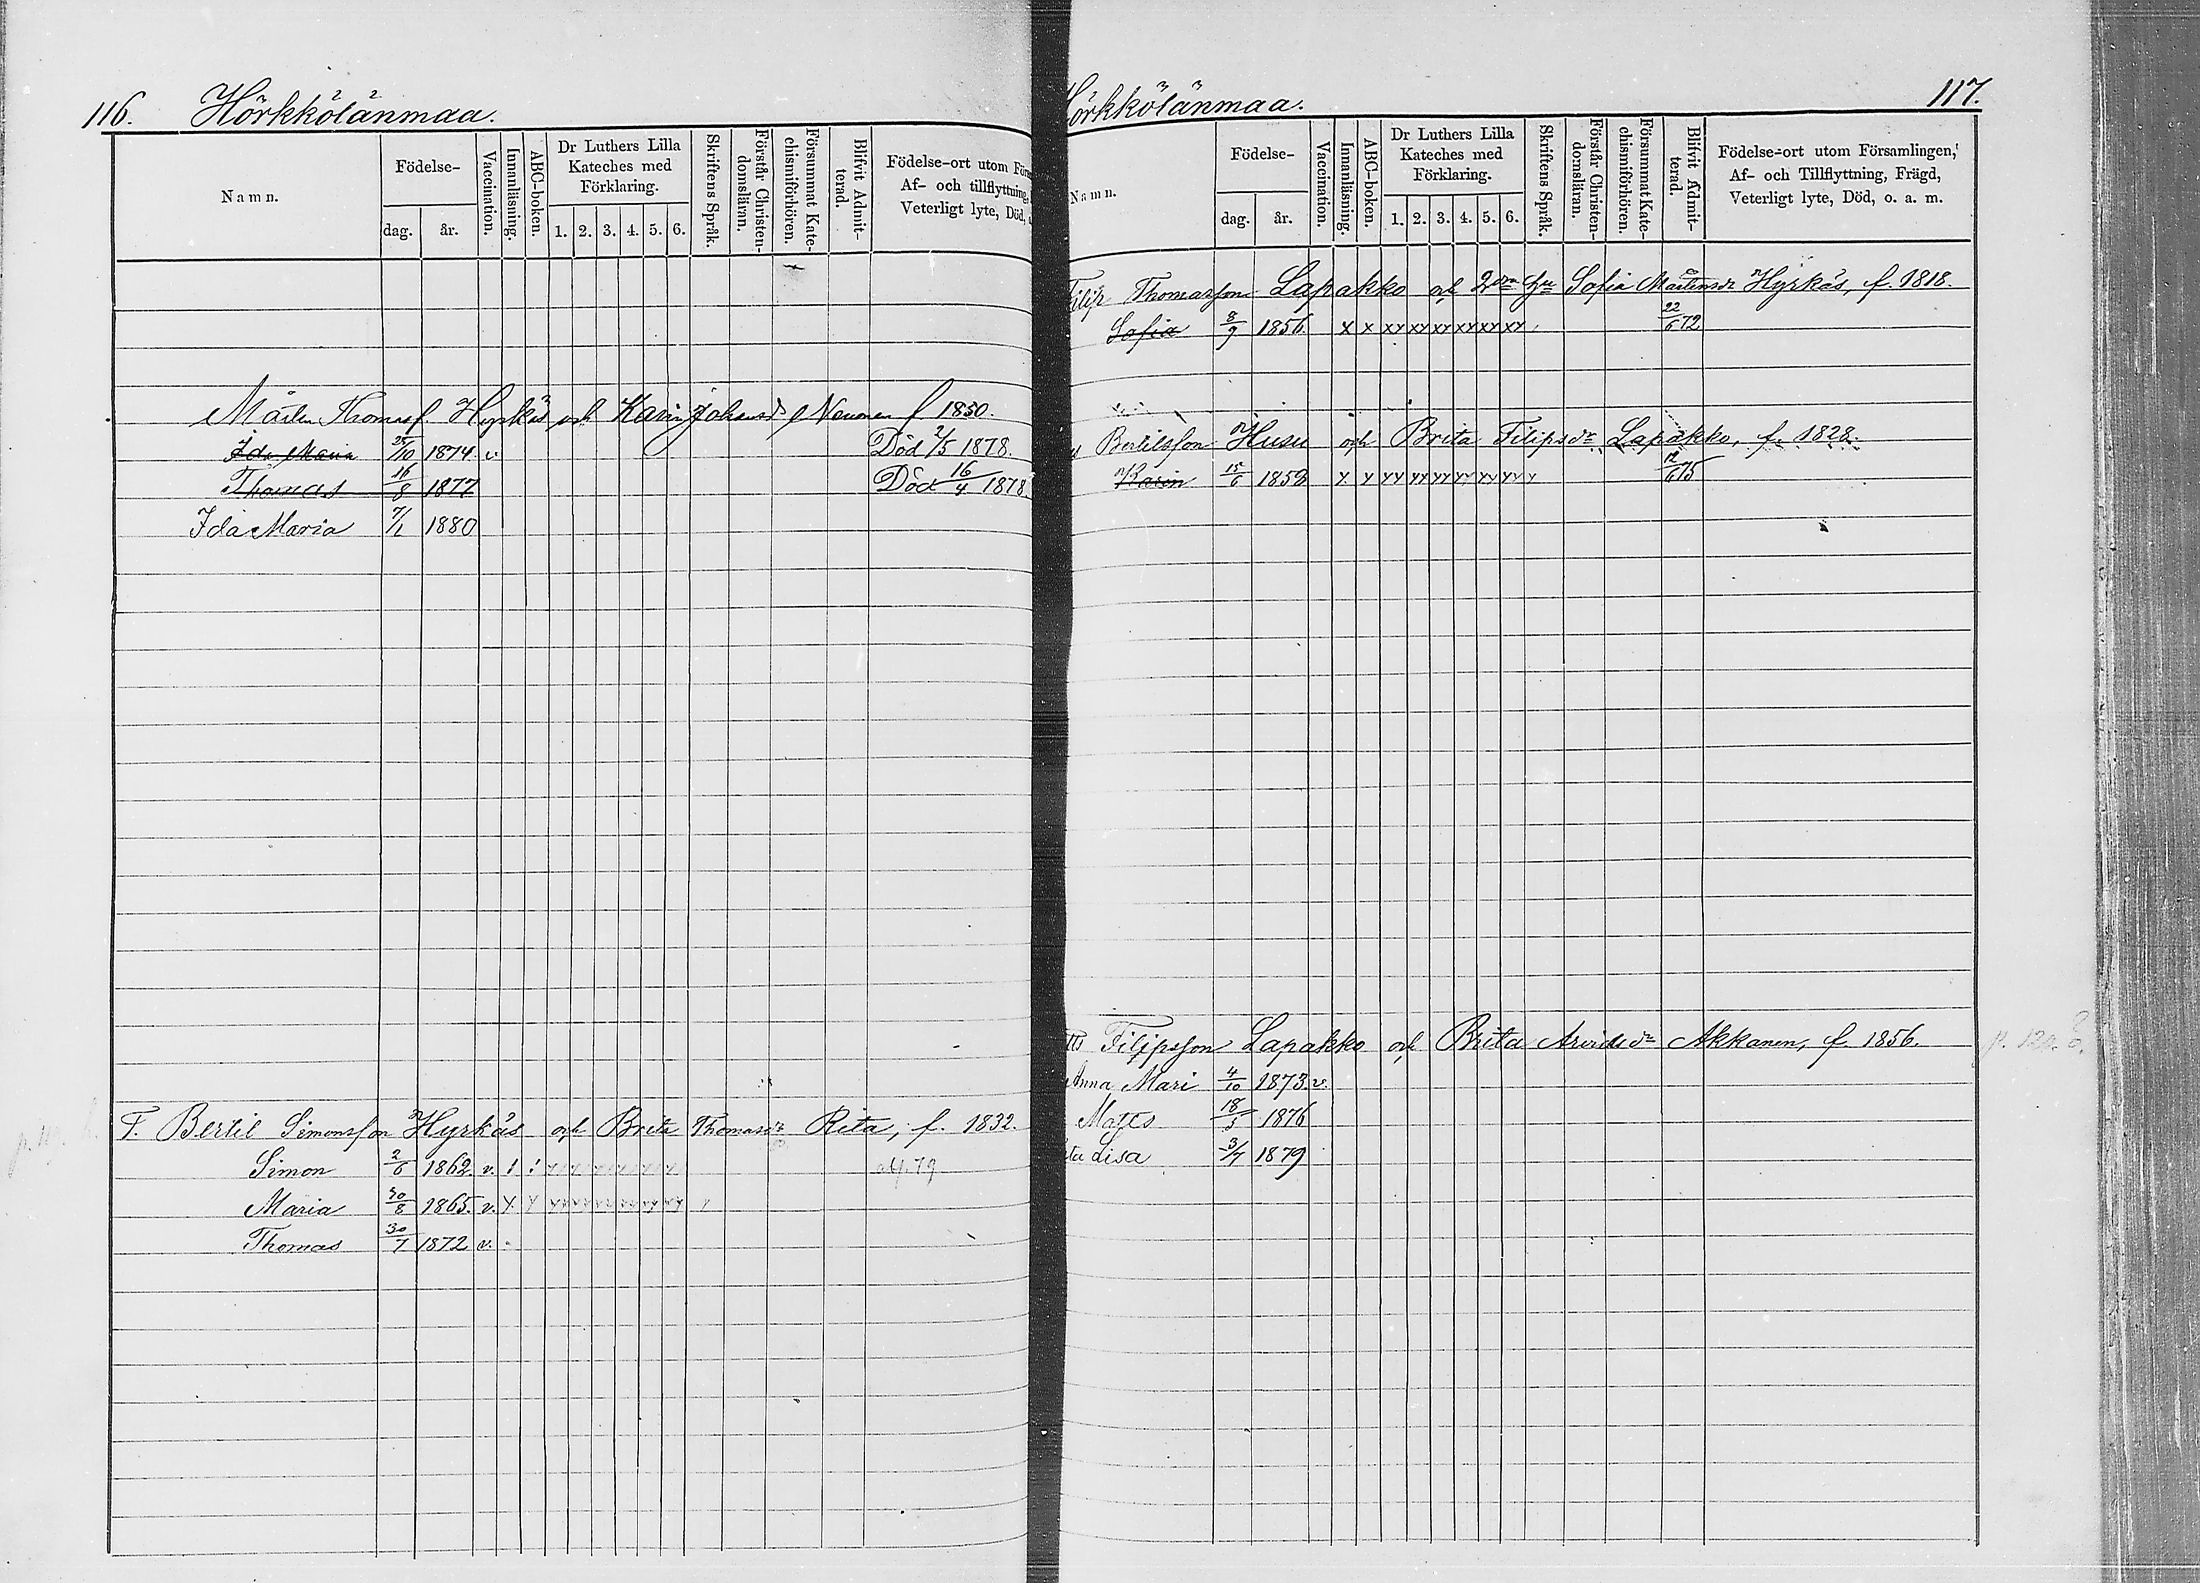 116. Hörkkölänmaa.
Namn.
Födelse-
dag. år.
Vaccination.
Innanläsning.
ABC-boken.
Dr Luthers Lilla
Kateches med
Förklaring.
1. 2. 3. 4. 5. 6.
Skriftens Språk.
Förstår Christen-
domsläran.
Försummat Kate-
chismiförhören.
Blifvit Admit-
terad.
Födelse-ort utom
Af- och tillflyttning,
Veterligt lyte, Död,
Mårten Thomasf. Hyrkäs och Karin Johansdr f 1850.
Ida Maria 25/10 1874 v. Död 2/5 1878.
Thomas 16/8 1877 Död 16/4 1878
Ida Maria 7/1 1880
T. Bertil Simonsson Hyrkäs och Brita Thomasdr Rita, f. 1832.
Simon 2/6 1862 v.
Maria 30/8 1865. v. x x
Thomas 30/7 1872 v.
Hörkkölänmaa. 117.
Namn.
Födelse-
dag. år.
Vaccination.
Innanläsning.
ABC-boken.
Dr Luthers Lilla
Kateches med
Förklaring.
1. 2. 3. 4. 5. 6.
Skriftens Språk.
Förstår Christen-
domsläran.
Försummat Kate-
chismiförhören.
Blifvit Admit-
terad.
Födelse-ort utom Församlingen,
Af- och Tillflyttning, Frägd,
Veterligt lyte, Död, o. a. m.
Filip Thomasson Lapakko och 2dra Hu Sofia Mårtensdr Hyrkäs, f. 1818.
Sofia 8/9 1856 x x xx xx xx xx xx xx 22/6 72
Bertilsson Husu och Brita Filipsdr Lapakko, f. 1828.
Karin 15/6 1859 x x xx xx xx xx xx xx x 12/6 75
Filipsson Lapakko och Brita Arvidsdr Akkanen, f. 1856.
Anna Mari 4/10 1873. v.
Matts 18/3 1876
Lisa 3/7 1879